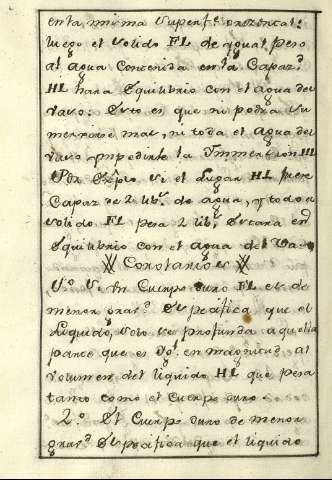 en la misma superf.e orizontal:
luego el solido FL de ygual peso
al agua Contenida en la Capaz.d
HL hara Equilibrio con el agua del
vaso: Esto es que ni podra su
mergirse mas, ni toda el agua del
vaso ympedirle la Ymmersion HL
Por Ex.plo si el Lugar HL fuere
Capaz de 2 lib.s de agua, y todo el
solido FL pesa 2 lib.s Estara en
Equilibrio con el agua del Vaso
Corolarios
1.º Si Un Cuerpo duro FL es de
menor grav.d Especifica que el
Liquido, solo se profunda aquella
parte que es yg.l en magnitud al
volumen del liquido HL que pesa
tanto como el Cuerpo duro.
2.º El Cuerpo duro de menor
grav.d Especifica que el liquido